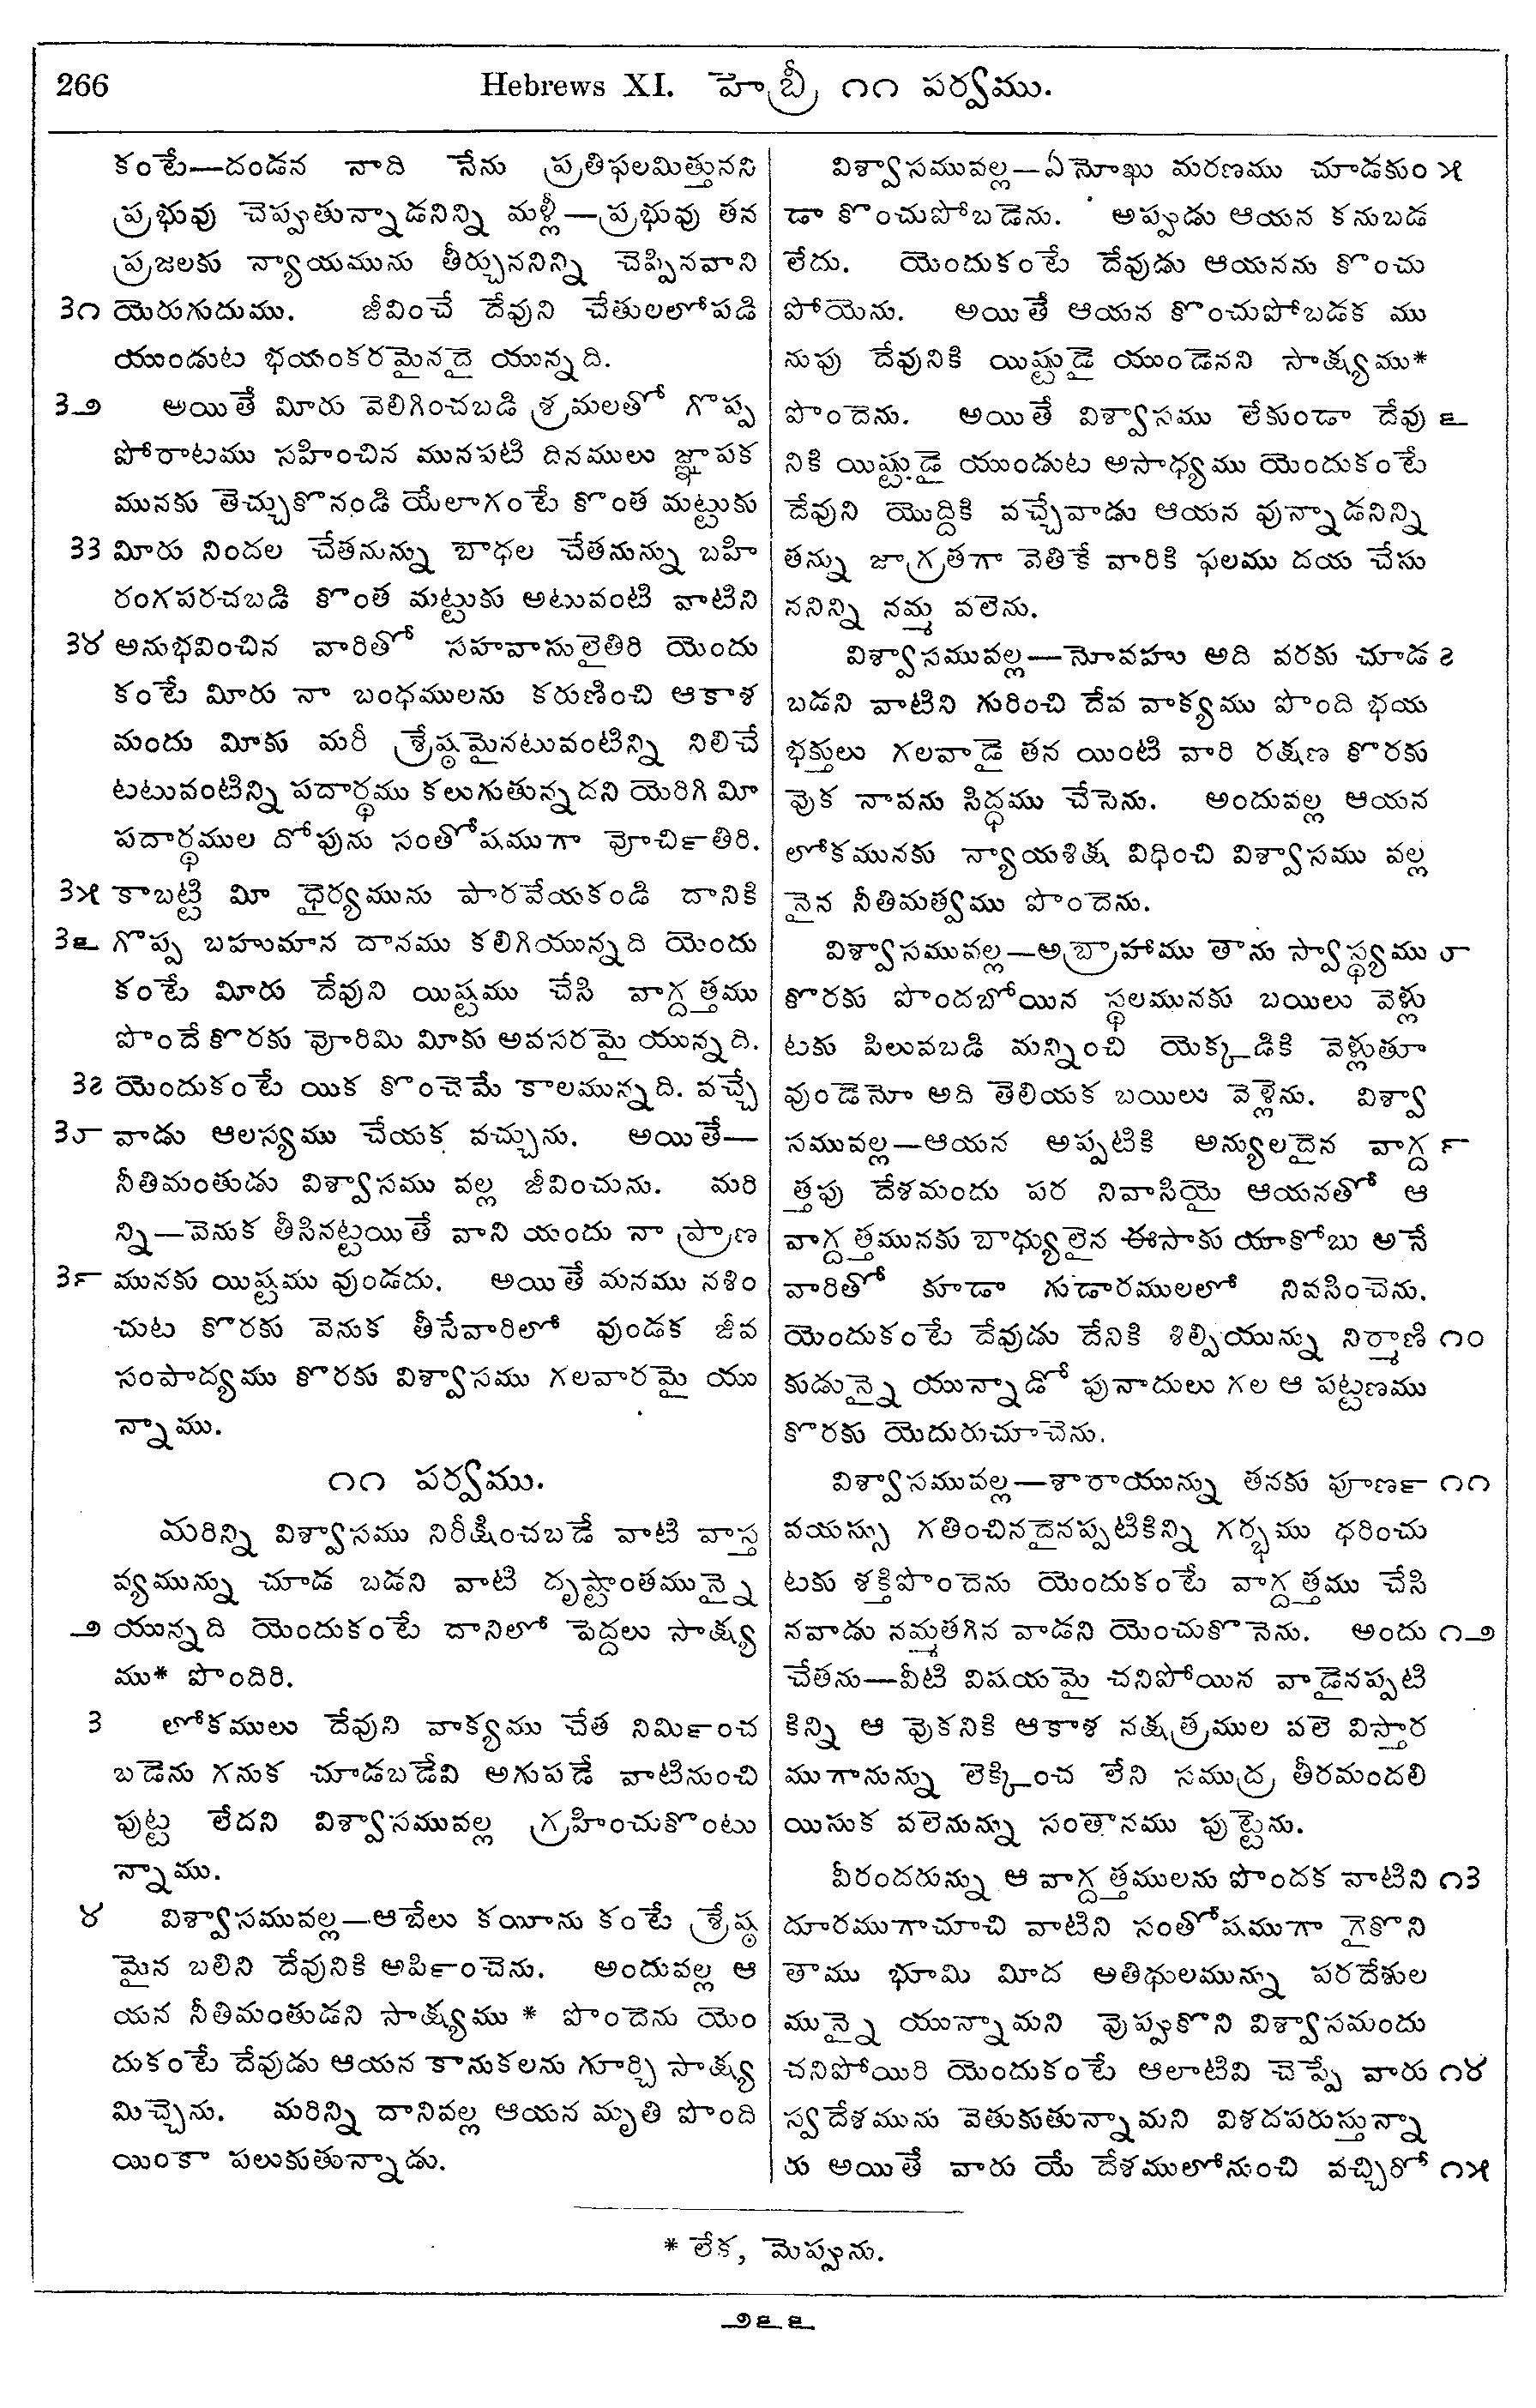 266
Hebrews XI. హెబ్రీ ౧౧ పర్వము.
కంటే—దండన నాది నేను ప్రతిఫలమిత్తునని
ప్రభువు చెప్పుతున్నాడనిన్ని మళ్లీ—ప్రభువు తన
ప్రజలకు న్యాయమును తీర్చుననిన్ని చెప్పినవాని
౩౧ యెరుగుదుము. జీవించే దేవుని చేతులలోపడి
యుండుట భయంకరమైనదై యున్నది.
౩౨ అయితే మీరు వెలిగించబడి శ్రమలతో గొప్ప
పోరాటము సహించిన మునపటి దినములు జ్ఞాపక
మునకు తెచ్చుకొనండి యేలాగంటే కొంత మట్టుకు
౩౩ మీరు నిందల చేతనున్ను బాధల చేతనున్ను బహి
రంగపరచబడి కొంత మట్టుకు అటువంటి వాటిని
౩౪ అనుభవించిన వారితో సహవాసులైతిరి యెందు
కంటే మీరు నా బంధములను కరుణించి ఆకాశ
మందు మీకు మరీ శ్రేష్ఠమైనటువంటిన్ని నిలిచే
టటువంటిన్ని పదార్థము కలుగుతున్నదని యెరిగి మీ
పదార్థముల దోపును సంతోషముగా వోర్చితిరి.
౩౫ కాబట్టి మీ ధైర్యమును పారవేయకండి దానికి
౩౬ గొప్ప బహుమాన దానము కలిగియున్నది యెందు
కంటే మీరు దేవుని యిష్టము చేసి వాగ్దత్తము
పొందే కొరకు వోరిమి మీకు అవసరమై యున్నది.
౩౭ యెందుకంటే యిక కొంచెమే కాలమున్నది. వచ్చే
౩౮ వాడు ఆలస్యము చేయక వచ్చును. అయితే—
నీతిమంతుడు విశ్వాసము వల్ల జీవించును. మరి
న్ని—వెనుక తీసినట్టయితే వాని యందు నా ప్రాణ
౩౯ మునకు యిష్టము వుండదు. అయితే మనము నశిం
చుట కొరకు వెనుక తీసేవారిలో వుండక జీవ
సంపాద్యము కొరకు విశ్వాసము గలవారమై యు
న్నాము.
౧౧ పర్వము.
మరిన్ని విశ్వాసము నిరీక్షించబడే వాటి వాస్త
వ్యమున్ను చూడ బడని వాటి దృష్టాంతమున్నై
౨ యున్నది యెందుకంటే దానిలో పెద్దలు సాక్ష్య
ము* పొందిరి.
౩ లోకములు దేవుని వాక్యము చేత నిర్మించ
బడెను గనుక చూడబడేవి అగుపడే వాటినుంచి
పుట్ట లేదని విశ్వాసమువల్ల గ్రహించుకొంటు
న్నాము.
౪ విశ్వాసమువల్ల—ఆబేలు కయీను కంటే శ్రేష్ఠ
మైన బలిని దేవునికి అర్పించెను. అందువల్ల ఆ
యన నీతిమంతుడని సాక్ష్యము * పొందెను యెం
దుకంటే దేవుడు ఆయన కానుకలను గూర్చి సాక్ష్య
మిచ్చెను. మరిన్ని దానివల్ల ఆయన మృతి పొంది
యింకా పలుకుతున్నాడు.
విశ్వాసమువల్ల—ఏనోఖు మరణము చూడకుం ౫
డా కొంచుపోబడెను. అప్పుడు ఆయన కనుబడ
లేదు. యెందుకంటే దేవుడు ఆయనను కొంచు
పోయెను. అయితే ఆయన కొంచుపోబడక ము
నుపు దేవునికి యిష్టుడై యుండెనని సాక్ష్యము*
పొందెను. అయితే విశ్వాసము లేకుండా దేవు ౬
నికి యిష్టుడై యుండుట అసాధ్యము యెందుకంటే
దేవుని యొద్దికి వచ్చేవాడు ఆయన వున్నాడనిన్ని
తన్ను జాగ్రతగా వెతికే వారికి ఫలము దయ చేసు
ననిన్ని నమ్మ వలెను.
విశ్వాసమువల్ల—నోవహు అది వరకు చూడ ౭
బడని వాటిని గురించి దేవ వాక్యము పొంది భయ
భక్తులు గలవాడై తన యింటి వారి రక్షణ కొరకు
వుక నావను సిద్ధము చేసెను. అందువల్ల ఆయన
లోకమునకు న్యాయశిక్ష విధించి విశ్వాసము వల్ల
నైన నీతిమత్వము పొందెను.
విశ్వాసమువల్ల—అబ్రాహాము తాను స్వాస్థ్యము ౮
కొరకు పొందబోయిన స్థలమునకు బయిలు వెళ్లు
టకు పిలువబడి మన్నించి యెక్కడికి వెళ్లుతూ
వుండెనో అది తెలియక బయిలు వెళ్లెను. విశ్వా
సమువల్ల—ఆయన అప్పటికి అన్యులదైన వాగ్ద ౯
త్తపు దేశమందు పర నివాసియై ఆయనతో ఆ
వాగ్దత్తమునకు బాధ్యులైన ఈసాకు యాకోబు అనే
వారితో కూడా గుడారములలో నివసించెను.
యెందుకంటే దేవుడు దేనికి శిల్పియున్ను నిర్మాణి ౧౦
కుడున్నై యున్నాడో పునాదులు గల ఆ పట్టణము
కొరకు యెదురుచూచెను.
విశ్వాసమువల్ల—శారాయున్ను తనకు పూర్ణ ౧౧
వయస్సు గతించినదైనప్పటికిన్ని గర్భము ధరించు
టకు శక్తిపొందెను యెందుకంటే వాగ్దత్తము చేసి
నవాడు నమ్మతగిన వాడని యెంచుకొనెను. అందు ౧౨
చేతను—వీటి విషయమై చనిపోయిన వాడైనప్పటి
కిన్ని ఆ వుకనికి ఆకాశ నక్షత్రముల వలె విస్తార
ముగానున్ను లెక్కించ లేని సముద్ర తీరమందలి
యిసుక వలెనున్ను సంతానము పుట్టెను.
వీరందరున్ను ఆ వాగ్దత్తములను పొందక వాటిని ౧౩
దూరముగాచూచి వాటిని సంతోషముగా గైకొని
తాము భూమి మీద అతిథులమున్ను పరదేశుల
మున్నై యున్నామని వొప్పుకొని విశ్వాసమందు
చనిపోయిరి యెందుకంటే ఆలాటివి చెప్పే వారు ౧౪
స్వదేశమును వెతుకుతున్నామని విశదపరుస్తున్నా
రు అయితే వారు యే దేశములోనుంచి వచ్చిరో ౧౫
* లేక, మెప్పును.
౨౬౬